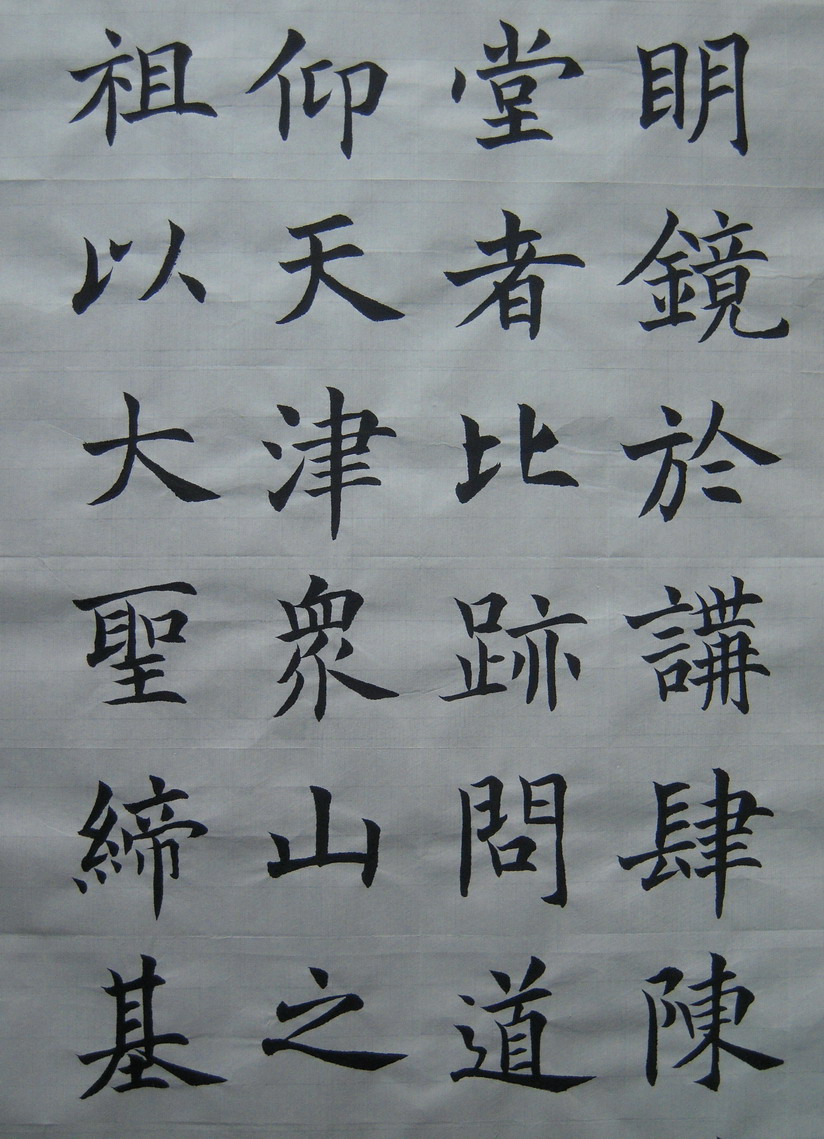 明鏡於講肆陳
堂者比跡問道
仰天津衆山之
祖以大聖締基